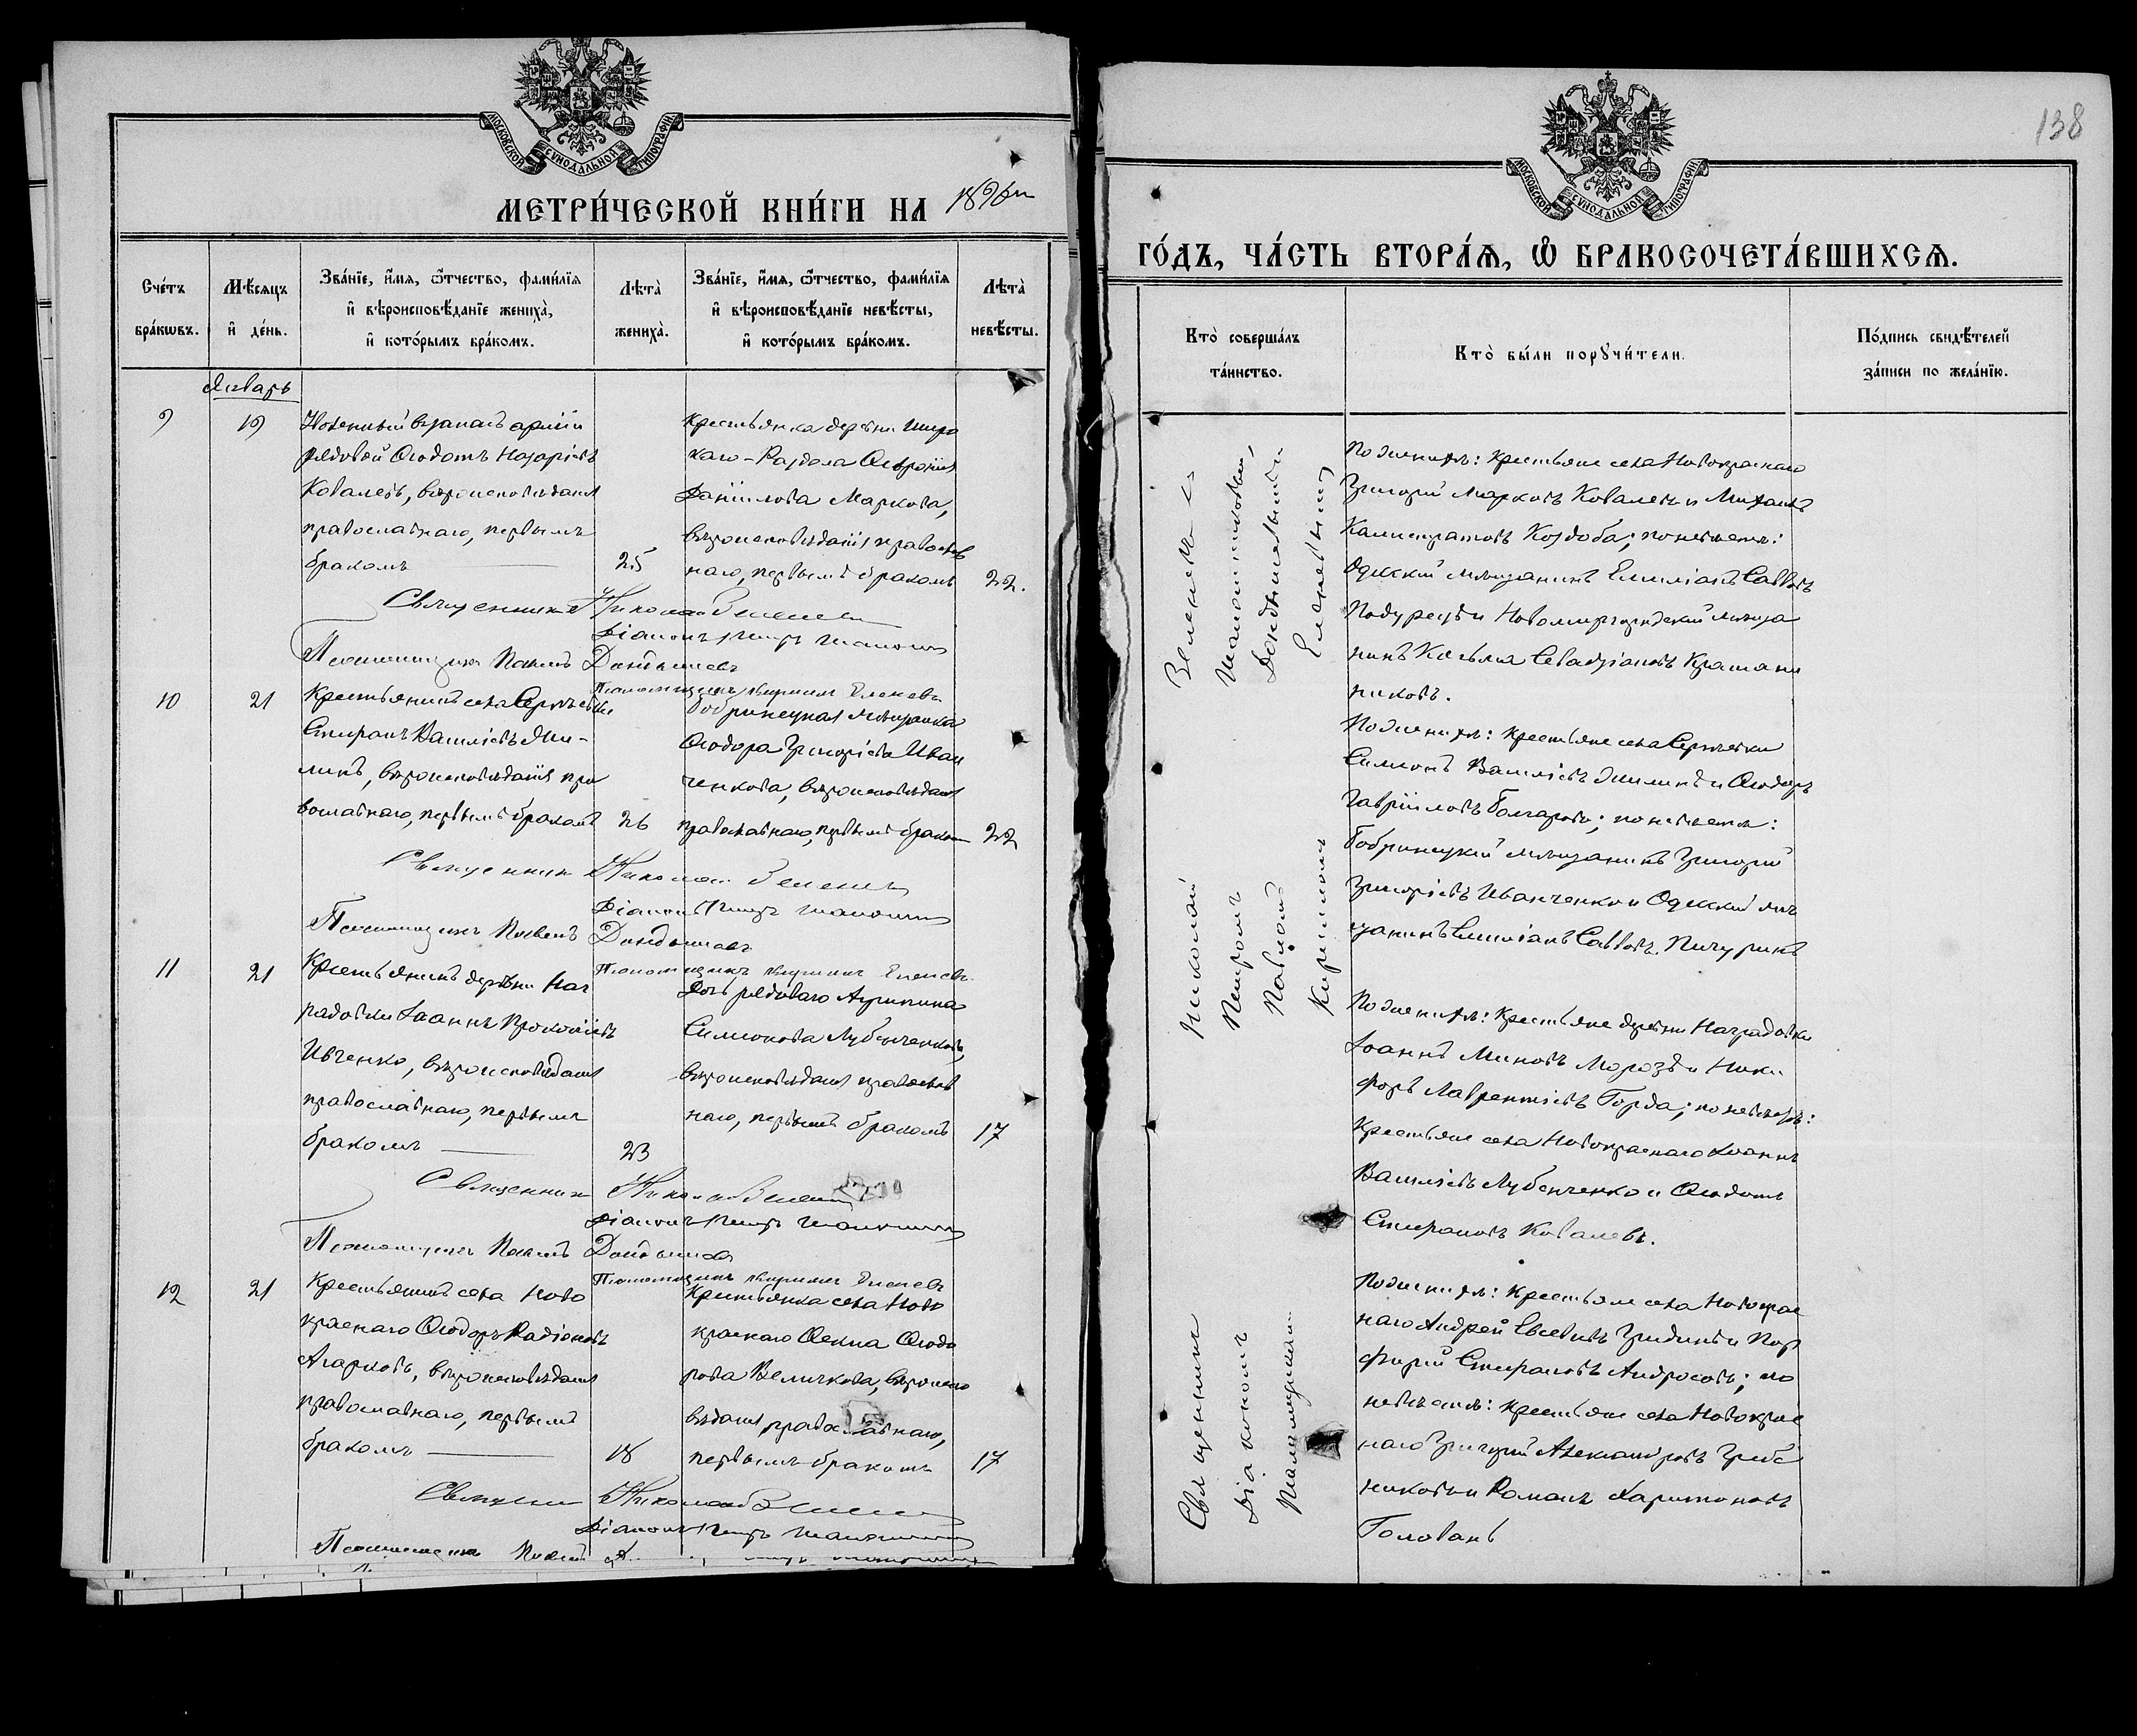 МОСКОВСКОЙ СѴНОДАЛЬНОЙ ТИПОГРАФІИ
МЕТРИ́ЧЕСКОЙ КНИ́ГИ НА 1896
Сче́тъ бра́кѡвъ.
Мѣ́сѧцъ и҆ де́нь.
Зва́нїе, и҆́мѧ, ѻ҆́тчество, фами́лїѧ
и҆ вѣроисповѣ́данїе жениха̀,
и҆ кото́рымъ бра́комъ.
Лѣта̀ жениха̀.
Зва́нїе, и҆́мѧ, ѻ҆́тчество, фами́лїѧ
и҆ вѣроисповѣ́данїе невѣ́сты,
и҆ кото́рымъ бра́комъ.
Лѣта̀ невѣ́сты.
Январь
9
19
въ запасъ арміи
рядовой Ѳеодотъ Назаріевъ
Ковалевъ, вѣроисповѣданія
православнаго, первымъ
бракомъ
25
Крестьянка деревни Широ
каго-Раздола Февронія
Даніилова Маркова,
вѣроисповѣданія православ
наго, первымъ бракомъ
22.
Священникъ Николай Зеленевъ
Діаконъ Петръ
Псаломщикъ Павелъ
Псаломщикъ Кириллъ Еленевъ
10
21
Крестьянинъ села Сергѣевки
Стефанъ Василіевъ Яли-
линъ, вѣроисповѣданія пра
вославнаго, первымъ бракомъ
26
Бобринецкая мѣщанка
Ѳеодора Григоріева Иван
ченкова, вѣроисповѣданія
православнаго, первымъ бракомъ
22
Священникъ Николай Зеленевъ
Діаконъ Петръ
Псаломщикъ Павелъ
Псаломщикъ Кириллъ Еленевъ
11
21
Крестьянинъ деревни Наг
радовки Іоаннъ Прокопіевъ
Ивченко, вѣроисповѣданія
православнаго, первымъ
бракомъ
23
Дочь рядоваго Агриппина
Симонова Лубенченкова,
вѣроисповѣданія православ
наго, первымъ бракомъ
17
Священникъ Николай Зеленевъ
Діаконъ Петръ
Псаломщикъ Павелъ
Псаломщикъ Кириллъ Еленевъ
12
21
Крестьянинъ села Ново
краснаго Ѳеодоръ Радіоновъ
Агарковъ, вѣроисповѣданія
православнаго, первымъ
бракомъ
18
Крестьянка села Ново
краснаго Ѳекла Ѳеодо
рова Величкова, вѣроиспо
вѣданія православнаго,
первымъ бракомъ
17
Священникъ Николай Зеленевъ
Діаконъ Петръ
Псаломщикъ Павелъ
138
МОСКОВСКОЙ СѴНОДАЛЬНОЙ ТИПОГРАФІИ
ГО́ДЪ, ЧА́СТЬ ВТОРА́Ѧ, Ѽ БРАКОСОЧЕТА́ВШИХСѦ.
Кто̀ соверша́лъ
та́инство.
Кто̀ бы́ли порꙋчи́тели.
По́дпись свидѣ́телей
за́писи по жела́нїю.
Священникъ Николай Зеленевъ съ
Діакономъ Петромъ
Псаломщиками Павломъ
Кирилломъ Еленевымъ
По женихѣ: крестьяне села Новокраснаго
Григорій Марковъ Ковалевъ и Михаилъ
Калистратовъ Коздоба; по невѣстѣ:
Одесскій мѣщанинъ Емиліанъ Савовъ
и Новомиргородскій мѣща
нинъ Косьма
По женихѣ: крестьяне села Сергѣевки
Симеонъ Василіевъ и Ѳеодоръ
Гавріиловъ Болгаровъ; по невѣстѣ:
Бобринецкій мѣщанинъ Григорій
Григоріевъ Иванченко и Одесскій мѣ
щанинъ Емиліанъ Савовъ
По женихѣ: крестьяне деревни Наградовки
Іоаннъ Миновъ Морозъ и Ники
форъ Лаврентіевъ Горда; по невѣстѣ:
крестьяне села Новокраснаго Іоаннъ
Василіевъ Лубенченко и Ѳеодотъ
Стефановъ Ковалевъ.
По женихѣ: крестьяне села Новокрас
наго Андрей Евсевіевъ Гридинъ и Пор
фирій Стефановъ Андросовъ; по
невѣстѣ: крестьяне села Новокрас
наго Григорій Александровъ Греб
никовъ и Романъ Харитоновъ
Голованъ